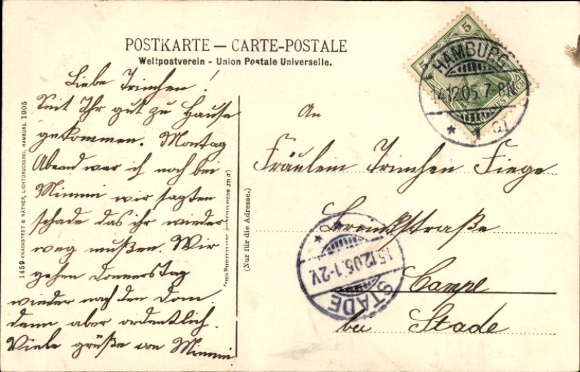 POSTKARTE – CARTE-POSTALE
Weltpostverein - Union Postale Universelle.
Liebe Trinchen!
Seit Ihr gut zu Hause
gekommen. Montag
Abend war ich noch bei
Mimmi wir sagten
schade das ihr wieder
weg mußten. Wir
gehen Donnerstag
wieder nach den Dom
denn aber ordentlich.
Viele grüße von Mimmi
1459 KNACKSTEDT & NÄTHER, LICHTDRUCKEREI, HAMBURG. 1905
(Nur für die Adresse.)
An
Fräulein Trinchen Fiege
Campe
bei Stade
5
5
HAMBURG
14.12.05. 7-8N.
* 1 g).
STADE
15.12.05. 1-2V.